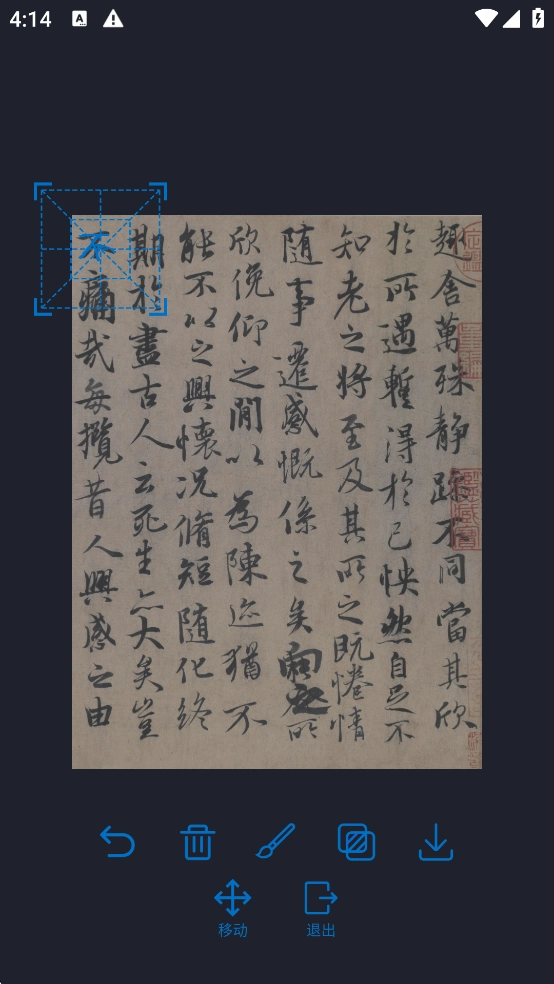 4:14
趣舍萬殊静躁不同當其欣
於所遇蹔得於己怏然自足不
知老之將至及其所之既惓情
隨事遷感慨係之矣向之所
欣俛仰之間以為陳迹猶不
能不以之興懷況脩短隨化終
期於盡古人云死生亦大矣豈
不痛哉每攬昔人興感之由
移动
退出